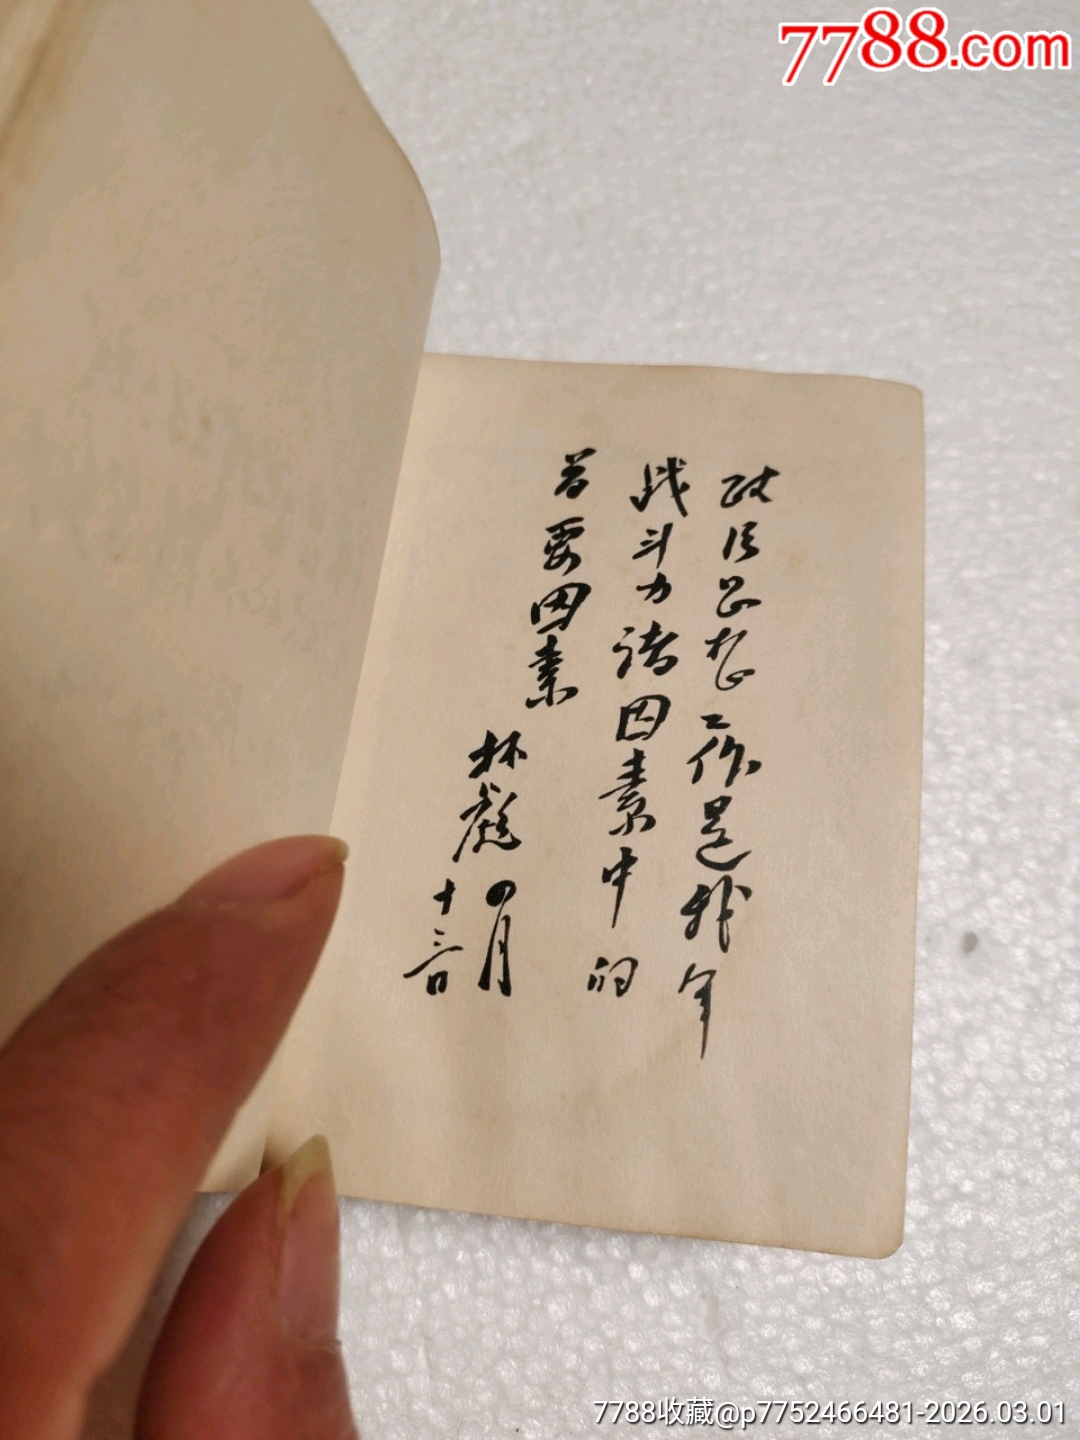 7788.com
政治思想工作是我军
战斗力诸因素中的
首要因素
林彪 四月
十三日
7788收藏@p7752466481-2026.03.01